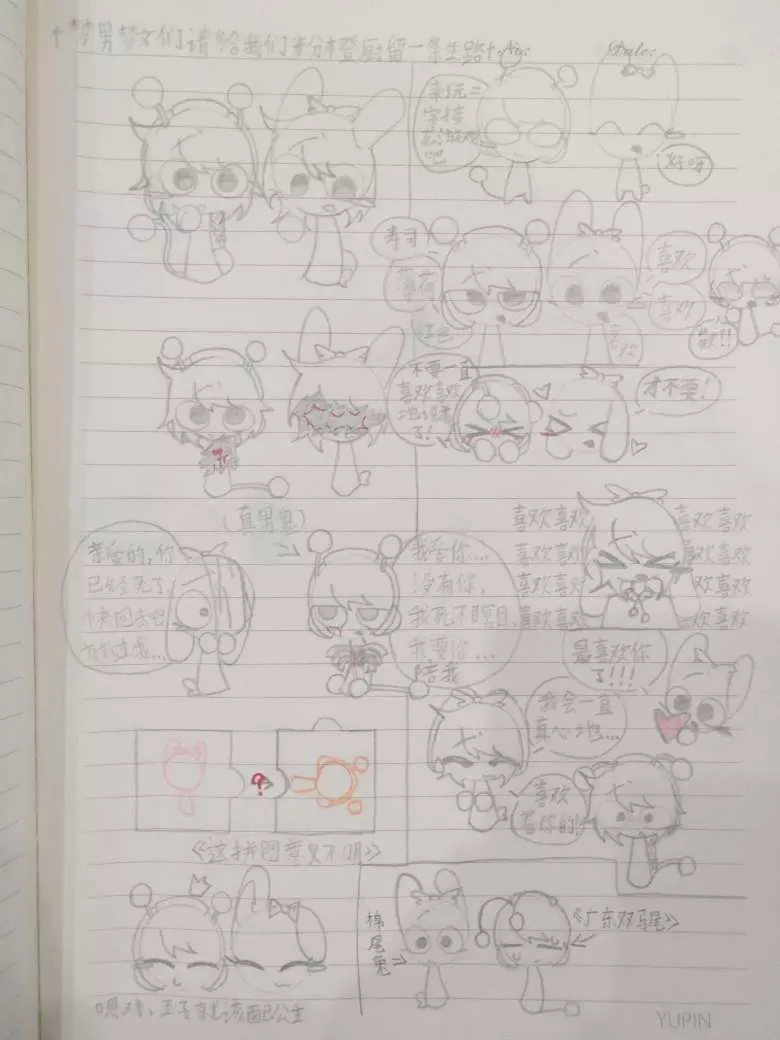 +梦男梦女们请给我们半分本登厨留一条生路+
No:
Date:
来玩二
字接
龙游戏
吧
好呀
寿司
薄荷
红色
喜欢
喜欢
喜欢
歡!!
不要一直
喜欢喜欢
地说
了!
才不要!
(真男鬼)
亲爱的,你
已经死了
快回去吧
放过我...
我爱你...
没有你,
我死不瞑目.
我要你...
陪我
喜欢喜欢 喜欢喜欢
喜欢喜欢 喜欢喜欢
喜欢喜欢 欢喜欢
喜欢喜欢 欢喜欢
最喜欢你
了!!!
我会一直
真心地...
喜欢
着你的!
?
《这拼图意义不明》
嗯对,王子就该配公主
棉
尾
兔
《广东双马尾》
YUPIN